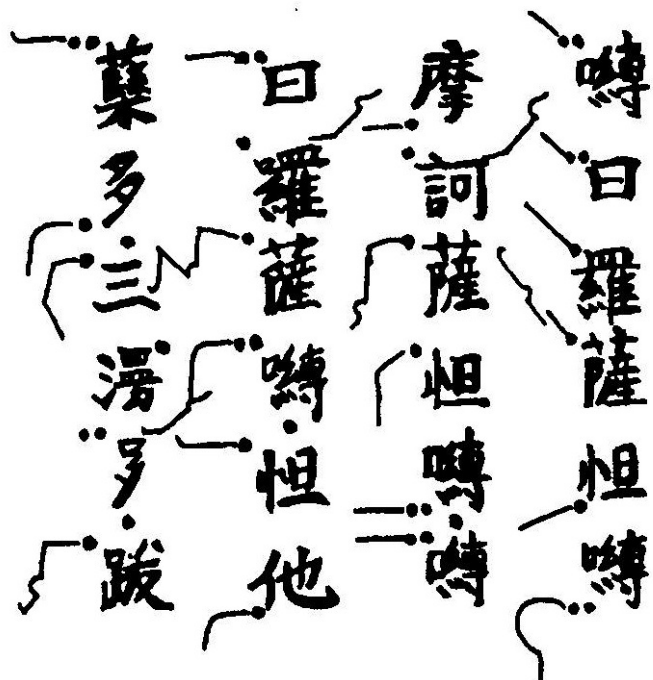 嚩日羅薩怛嚩
摩訶薩怛嚩嚩
日羅薩嚩怛他
蘗多三漫多跋